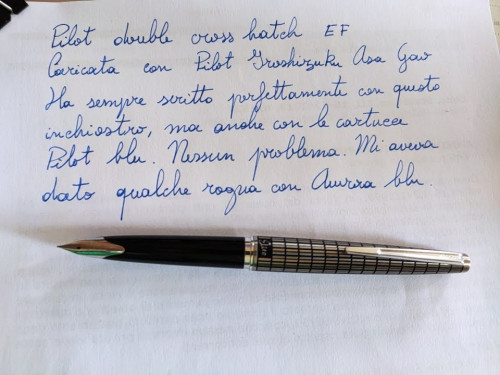 Pilot double cross hatch EF
Caricata con Pilot Iroshizuku Asa Gao
Ha sempre scritto perfettamente con questo
inchiostro, ma anche con le cartucce
Pilot blu. Nessun problema. Mi aveva
dato qualche rogna con Aurora blu.